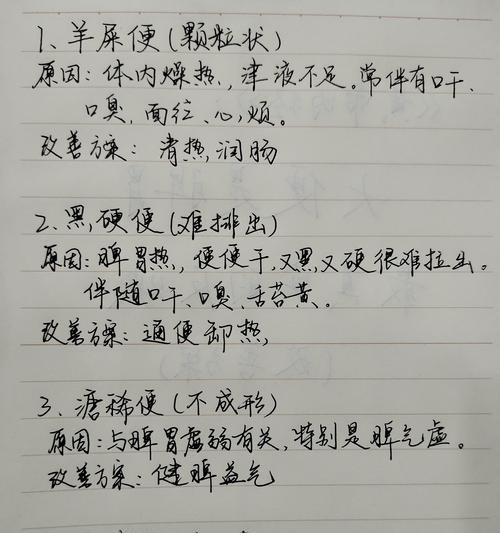 1、羊屎便(颗粒状)
原因:体内燥热,津液不足。常伴有口干、
口臭,面红、心烦。
改善方案:清热,润肠
2、黑,硬便(难排出)
原因:脾胃热,便便干,又黑,又硬很难拉出。
伴随口干、口臭、舌苔黄。
改善方案:通便卸热,
3、溏稀便(不成形)
原因:与脾胃虚弱有关,特别是脾气虚。
改善方案:健脾益气